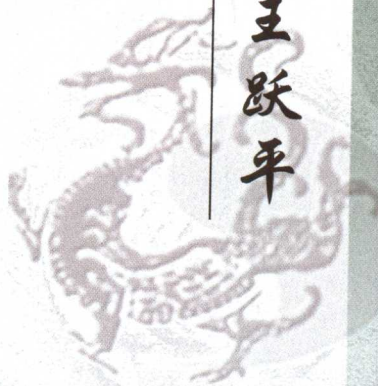 王跃平